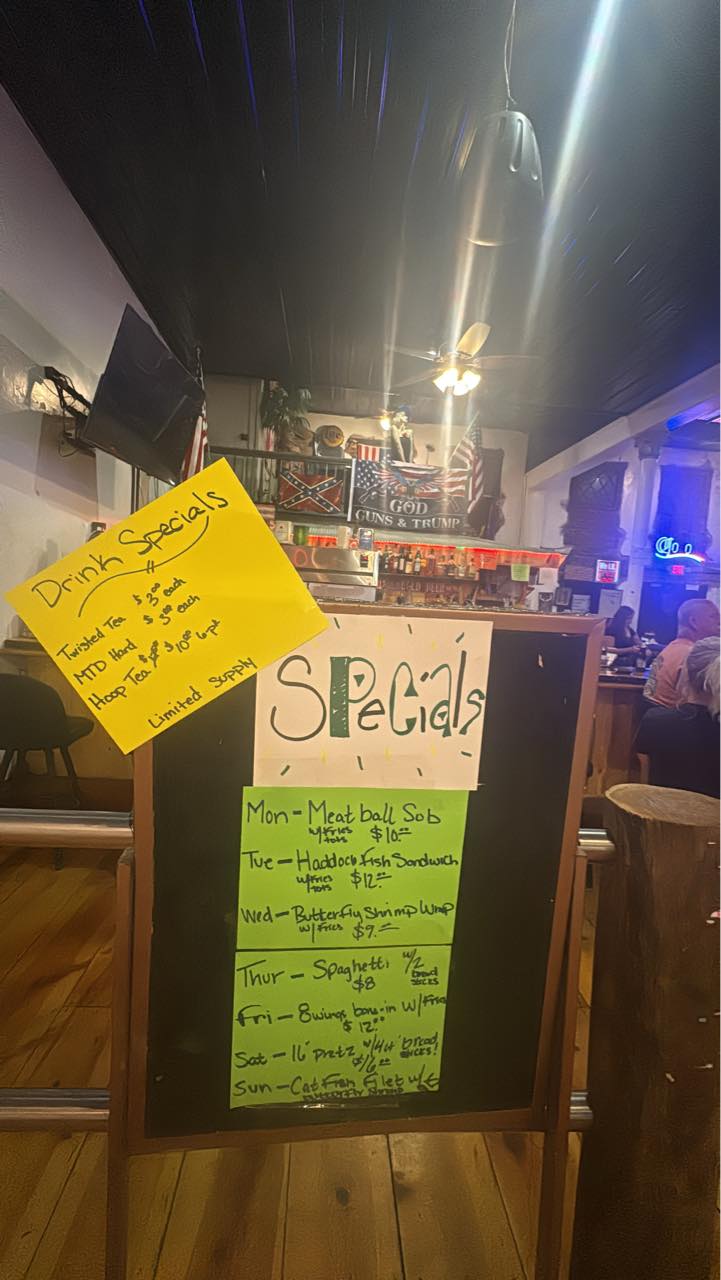 GOD
GUNS & TRUMP
Drink Specials
Twisted Tea $3.00 each
MTD Hard $3.00 each
Hoop Tea $10.00 6-pt
Limited Supply
SPeCials
Mon - Meat ball Sob
w/fries tots $10.00
Tue - Haddock fish Sandwich
w/fries tots $12.00
Wed - Butterfly Shrimp Wrap
w/ Fries $9.00
Thur - Spaghetti w/2 bread sticks
$8
Fri - 8 wings bone-in w/Fries
$12.00
Sat - 16" w/4 bread sticks!
Sun - Cat Fish Filet w/
Butterfly Shrimp